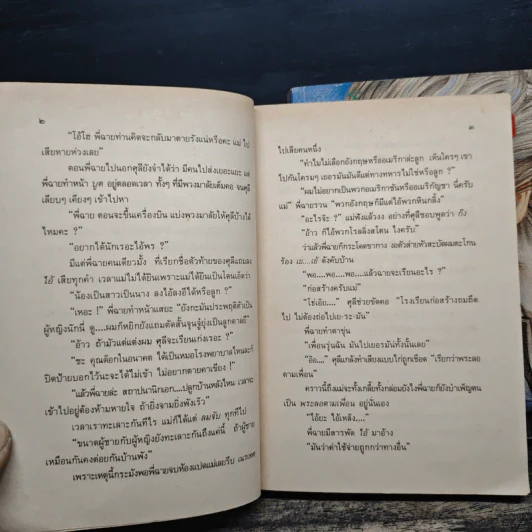 ๒
"โอ้โฮ พี่ฉายท่านคิดจะกลับมาตายรังแน่หรือคะ แม่ ไป
เสียหายห่วงเลย"
ตอนพี่ฉายไปนอกคุลีจังจำได้ว่า มีคนไปส่งเยอะแยะ แต่
พี่ฉายทำหน้า บูด อยู่ตลอดเวลา ทั้งๆ ที่มีพวงมาลัยเต็มคอ จนคุลี
เลียบๆ เคียงๆ เข้าไปหา
"พี่ฉาย ตอนจะขึ้นเครื่องบิน แบ่งพวงมาลัยให้คุลีบ้างได้
ไหมคะ ?"
"อยากได้นักเรอะไอ้พร ?"
มีแต่พี่ฉายคนเดียวมั้ง ที่เรียกชื่อตัวท้ายของคุลีแถมลง
ไอ้ เสียทุกคำ เวลาแม่ไม่ได้ยินเพราะแม่ได้ยินเป็นโดนเอ็ดว่า
"น้องเป็นสาวเป็นนาง ลงไอ้ลงอีได้หรือลูก ?"
"เหอะ !" พี่ฉายทำหน้าแสยะ "ยังกะมันประพฤติตัวเป็น
ผู้หญิงนักนี่ ดู....ผมก็หยิกยังแถมตัดสั้นจุนจู๋ยุ่งเป็นลูกตาลยี"
"อ้าว ถ้ามัวแต่แต่งผม คุลีจะเรียนเก่งเรอะ ?"
"ชะ คุณด็อกในอนาคต ได้เป็นหมอโรงพยาบาลไหนละก็
ปิดป้ายบอกไว้นะจะได้ไม่เข้า ไม่อยากตายคาเขียง !"
"แล้วพี่ฉายล่ะ สถาปนานิกเอก....ปลูกบ้านหลังไหน เวลาจะ
เข้าไปอยู่ต้องห้ามหายใจ ถ้ายิ่งจามยิ่งพังเร็ว"
เวลาเราทะเลาะกันทีไร แม่ก็ได้แต่ ลมจับ ทุกทีไป
"ขนาดผู้ชายกับผู้หญิงยังทะเลาะกันถึงแค่นี้ ถ้าผู้ชาย
เหมือนกันคงต่อยกันบ้านพัง"
เพราะเหตุนี้กระมังพอพี่ฉายจบห้องแปดแม่เลยรีบ เนรเทศ
๓
ไปเสียคนหนึ่ง
"ทำไมไม่เลือกอังกฤษหรืออเมริกาล่ะลูก เห็นใครๆ เขา
ไปกันโครมๆ เยอรมันมันดีแต่ทางทหารไม่ใช่หรือลูก ?"
"ผมไม่อยากเป็นพวกอเมริกาขันหรืออเมริกัญชา นี่ครับ
แม่" พี่ฉายรวน "พวกอังกฤษก็มีแต่ไอ้พวกหินกลิ้ง"
"อะไรจ๊ะ ?" แม่ฟังแล้วงง อย่างที่คุลีชอบพูดว่า กัง
"อ้าว ก็ไอ้พวกโรลลิ่งสโตน ไงครับ"
ว่าแล้วพี่ฉายก็กระโดดขากาง งอตัวส่ายหัวสะบัดผมตะโกน
ร้อง เย....เย้ ดังคับบ้าน
"พอ....พอ....พอ....แล้วฉายจะเรียนอะไร ?"
"ก่อสร้างครับแม่"
"โธ่เอ๊ย...." คุลีช่วยขัดคอ "โรงเรียนก่อสร้างถมถืด
ไป ไม่ต้องถ่อไปเย-ระ-มัน"
พี่ฉายทำตาขุ่น
"เพื่อนรุ่นฉัน มันไปเยอรมันทั้งนั้นเลย"
"อ้อ...." คุลีแกล้งทำเสียงแบบไก่ถูกเชือด "เรียกว่าพระลอ
ตามเพื่อน"
คราวนี้ถึงแม่จะทั้งเกลี้ยทั้งกล่อมยังไงพี่ฉายก็ยังบำเพ็ญตน
เป็น พระลอตามเพื่อน อยู่นั่นเอง
"ไอ้ยะ ไอ้เหลิง...."
พี่ฉายมีสารพัด ไอ้ มาอ้าง
"มันว่าค่าใช้จ่ายถูกกว่าทางอื่น"